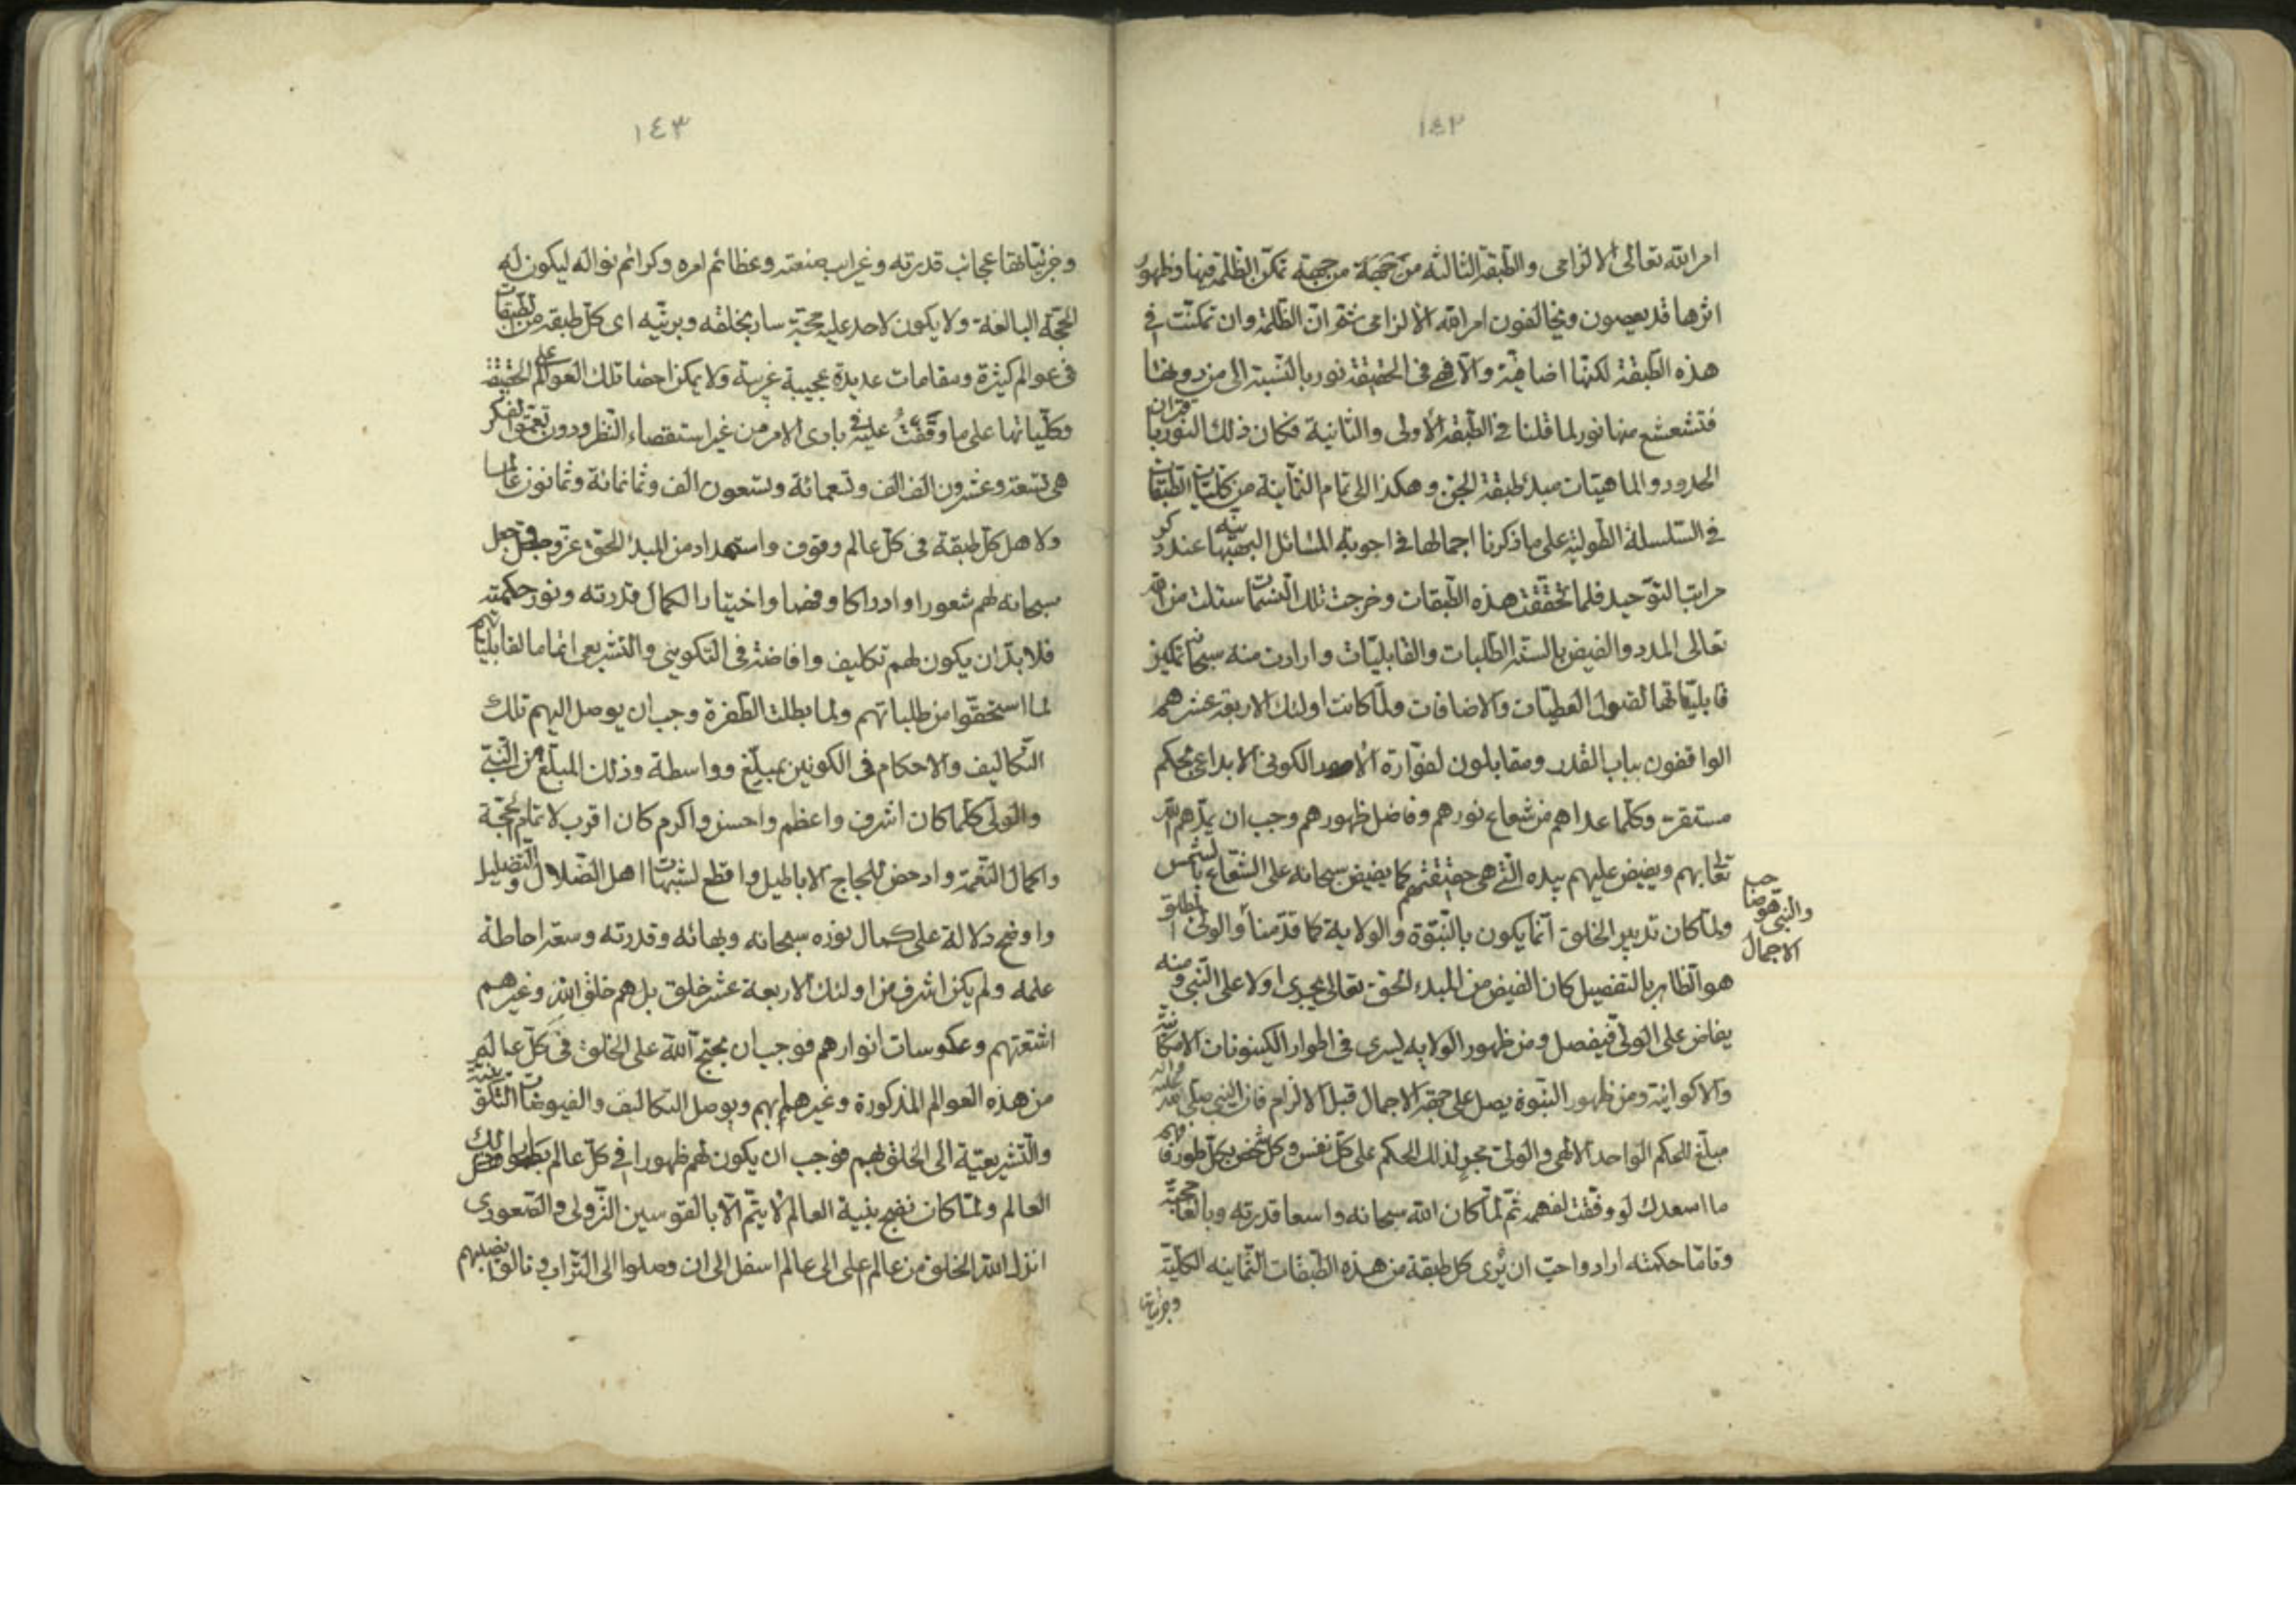 ١٤٢
امر الله تعالى الالزامى والطبقة الثالثه من جهة من جهة تمكن الظلمة فيها وظهور
اثرها قد يعصون ويخالفون امر الله الالزامى ثم ان الظلمة وان تمكنت فى
هذه الطبقة لكنها اضافية والا فهى فى الحقيقة نور بالنسبة الى من دونها
فتشعشع منها نور لما قلنا فى الطبقة الأولى والثانية فكان ذلك النور باقتران
الحدود والماهيات مبدء طبقة الجن وهكذا الى تمام الثمانية من كليات الطبقات
فى السلسلة الطولية على ما ذكرنا اجمالها فى اجوبة المسائل البهبهانيه عند ذكر
مراتب التوحيد فلما تحققت هذه الطبقات وخرجت تلك النسمات سئلت من الله
تعالى المدد والفيض بالسنة الطلبات والقابليات وارادت منه سبحانه تمكين
قابلياتها لقبول العطيات والاضافات ولما كانت اولئك الاربعة عشر هم
الواقفون بباب القدر ومقابلون لفوارة الامور الكونى الابداعى بحكم
مستقر وكلما عداهم من شعاع نورهم وفاضل ظهورهم وجب ان يمدهم الله
تعالى بهم ويفيض عليهم بيده التى هى حقيقتهم كما يفيض سبحانه على الشعاع بالشمس
ولما كان تدبير الخلق انما يكون بالنبوة والولاية كما قدمنا والولى المطلق
والنبى هو صاحب
الاجمال
هو الظاهر بالتفصيل كان الفيض من المبدء الحق تعالى يجرى اولا على النبى ومنه
يفاض على الولى فيفصل ومن ظهور الولايه يسرى فى اطوار الكينونات الامكانية
والاكوانية ومن ظهور النبوة يصل على جهة الاجمال قبل الالزام فان النبى صلى الله عليه واله
مبلغ للحكم الواحد الالهى والولى مجرٍ لذلك الحكم على كل نفس وكل شخص بكل طور فافهم
ما اسعدك لو وفقت لفهمه ثم لما كان الله سبحانه واسعا قدرته وبالغا حجته
وتاما حكمته اراد واحب ان يُرى كل طبقة من هذه الطبقات الثمانيه الكلية
وجزئياتها
١٤٣
وجزئياتها عجائب قدرته وغرايب صنعته وعظائم امره وكرائم نواله ليكون له
الحجة البالغة ولا يكون لاحد عليه حجة سار بخلقه وبريته اى كل طبقة من الطبقات
فى عوالم كثيرة ومقامات عديدة عجيبة غريبة ولا يمكن احصا تلك العوالم على الحقيقة
وكلياتها على ما وقفتُ عليه فى بادى الامر من غير استقصاء النظر ودون تعمق الفكر
هى تسعة وعشرون الف الف وتسعمائة وتسعون الف وثمانمائة وثمانون عالما
ولاهل كل طبقة فى كل عالم وقوف واستمداد من المبدء الحق عز وجل فجعل
سبحانه لهم شعورا وادراكا وفهما واختيارا لكمال قدرته ونور حكمته
فلابد ان يكون لهم تكاليف وافاضة فى التكوينى والتشريعى اتماما لقابلياتهم
لما استحقوا من طلباتهم ولما بطلت الطفرة وجب ان يوصل اليهم تلك
التكاليف والاحكام فى الكونين بمبلغ وواسطة وذلك المبلغ من النبى
والولى كلما كان اشرف واعظم واحسن واكرم كان اقرب لاتمام الحجة
واكمال النعمة وادحض للحاج الاباطيل واقطع لشبهات اهل الضلال والتضليل
واوضح دلالة على كمال نوره سبحانه وبهائه وقدرته وسعة احاطة
علمه ولم يكن اشرف من اولئك الاربعة عشر خلق بل هم خلق الله وغيرهم
اشعتهم وعكوسات انوارهم فوجب ان يحتج الله على الخلق فى كل عالم
من هذه العوالم المذكورة وغيرها بهم ويوصل التكاليف والفيوضات التكوينية
والتشريعية الى الخلق بهم فوجب ان يكون لهم ظهورا فى كل عالم بطور اهل ذلك
العالم ولما كان نضج بنية العالم لا يتم الا بالقوسين النزولى والصعودى
انزل الله الخلق من عالم اعلى الى عالم اسفل الى ان وصلوا الى التراب ونالوا نصيبهم